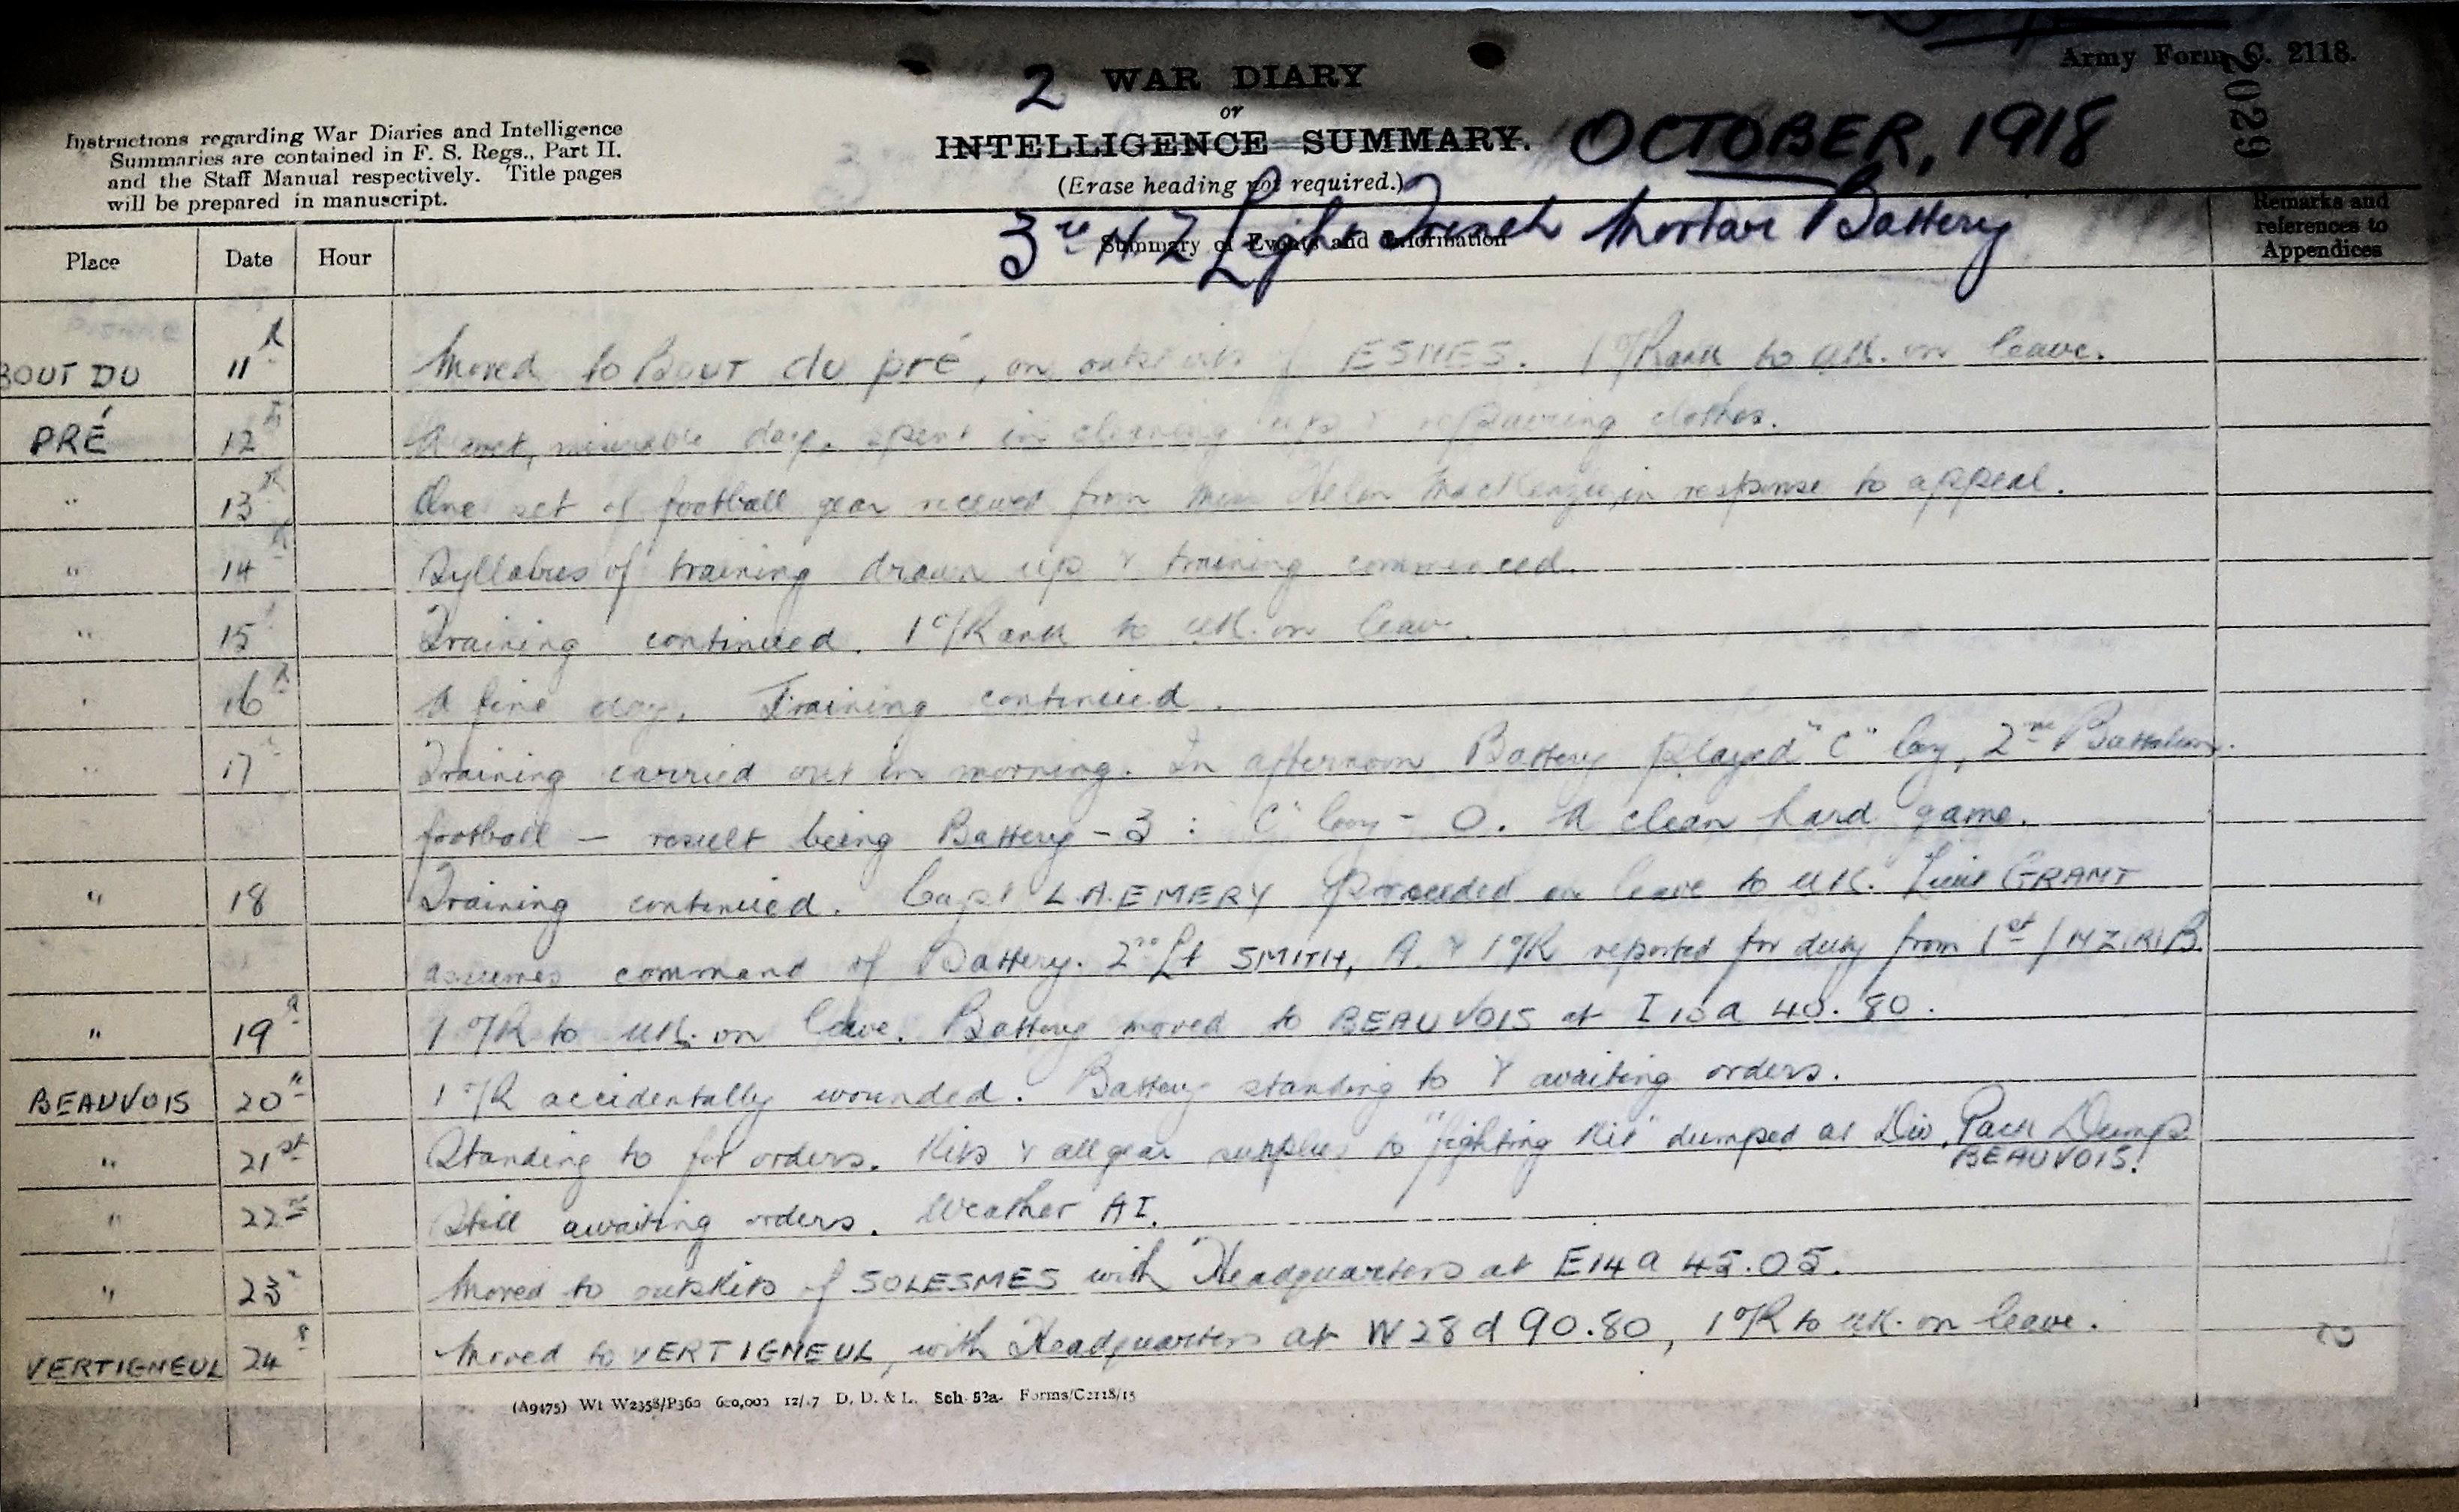 Army Form C. 2118.
2 WAR DIARY
or
INTELLIGENCE SUMMARY. OCTOBER, 1918
(Erase heading not required.)
2029
Instructions regarding War Diaries and Intelligence
Summaries are contained in F. S. Regs., Part II.
and the Staff Manual respectively. Title pages
will be prepared in manuscript.
3rd N Z Light Trench Mortar Battery
Place Date Hour Summary of Events and Information Remarks and
references to
Appendices
BOUT DU 11th Moved to BOUT du pré, on outskirts of ESNES. 1 O/Rank to UK. on leave.
PRÉ 12th A wet, miserable day, spent in cleaning up & repairing clothes.
" 13th One set of football gear received from Miss Helen MacKenzie, in response to appeal.
" 14th Syllabus of training drawn up & training commenced.
" 15th Training continued. 1 O/Rank to UK. on leave.
" 16th A fine day. Training continued.
" 17th Training carried out in morning. In afternoon Battery played "C" Coy, 2nd Battalion.
football – result being Battery – 3 : "C" Coy – 0. A clean hard game.
" 18 Training continued. Capt L.A. EMERY proceeded on leave to UK. Lieut GRANT
assumes command of Battery. 2nd Lt SMITH, A. & 1 O/R reported for duty from 1st / N Z (R) B.
" 19th 1 O/R to UK. on leave. Battery moved to BEAUVOIS at a 40.80.
BEAUVOIS 20th 1 O/R accidentally wounded. Battery standing to & awaiting orders.
" 21st Standing to for orders. Kits & all gear surplus to "fighting kit" dumped at Div. Pack Dump
BEAUVOIS.
" 22nd Still awaiting orders. Weather AI.
" 23rd Moved to outskirts of SOLESMES with Headquarters at E14a 45.05.
VERTIGNEUL 24th Moved to VERTIGNEUL, with Headquarters at W28d 90.80, 1 O/R to UK. on leave.
2
(A9475) Wt W2358/P360 600,000 12/17 D. D. & L. Sch. 52a. Forms/C2118/15